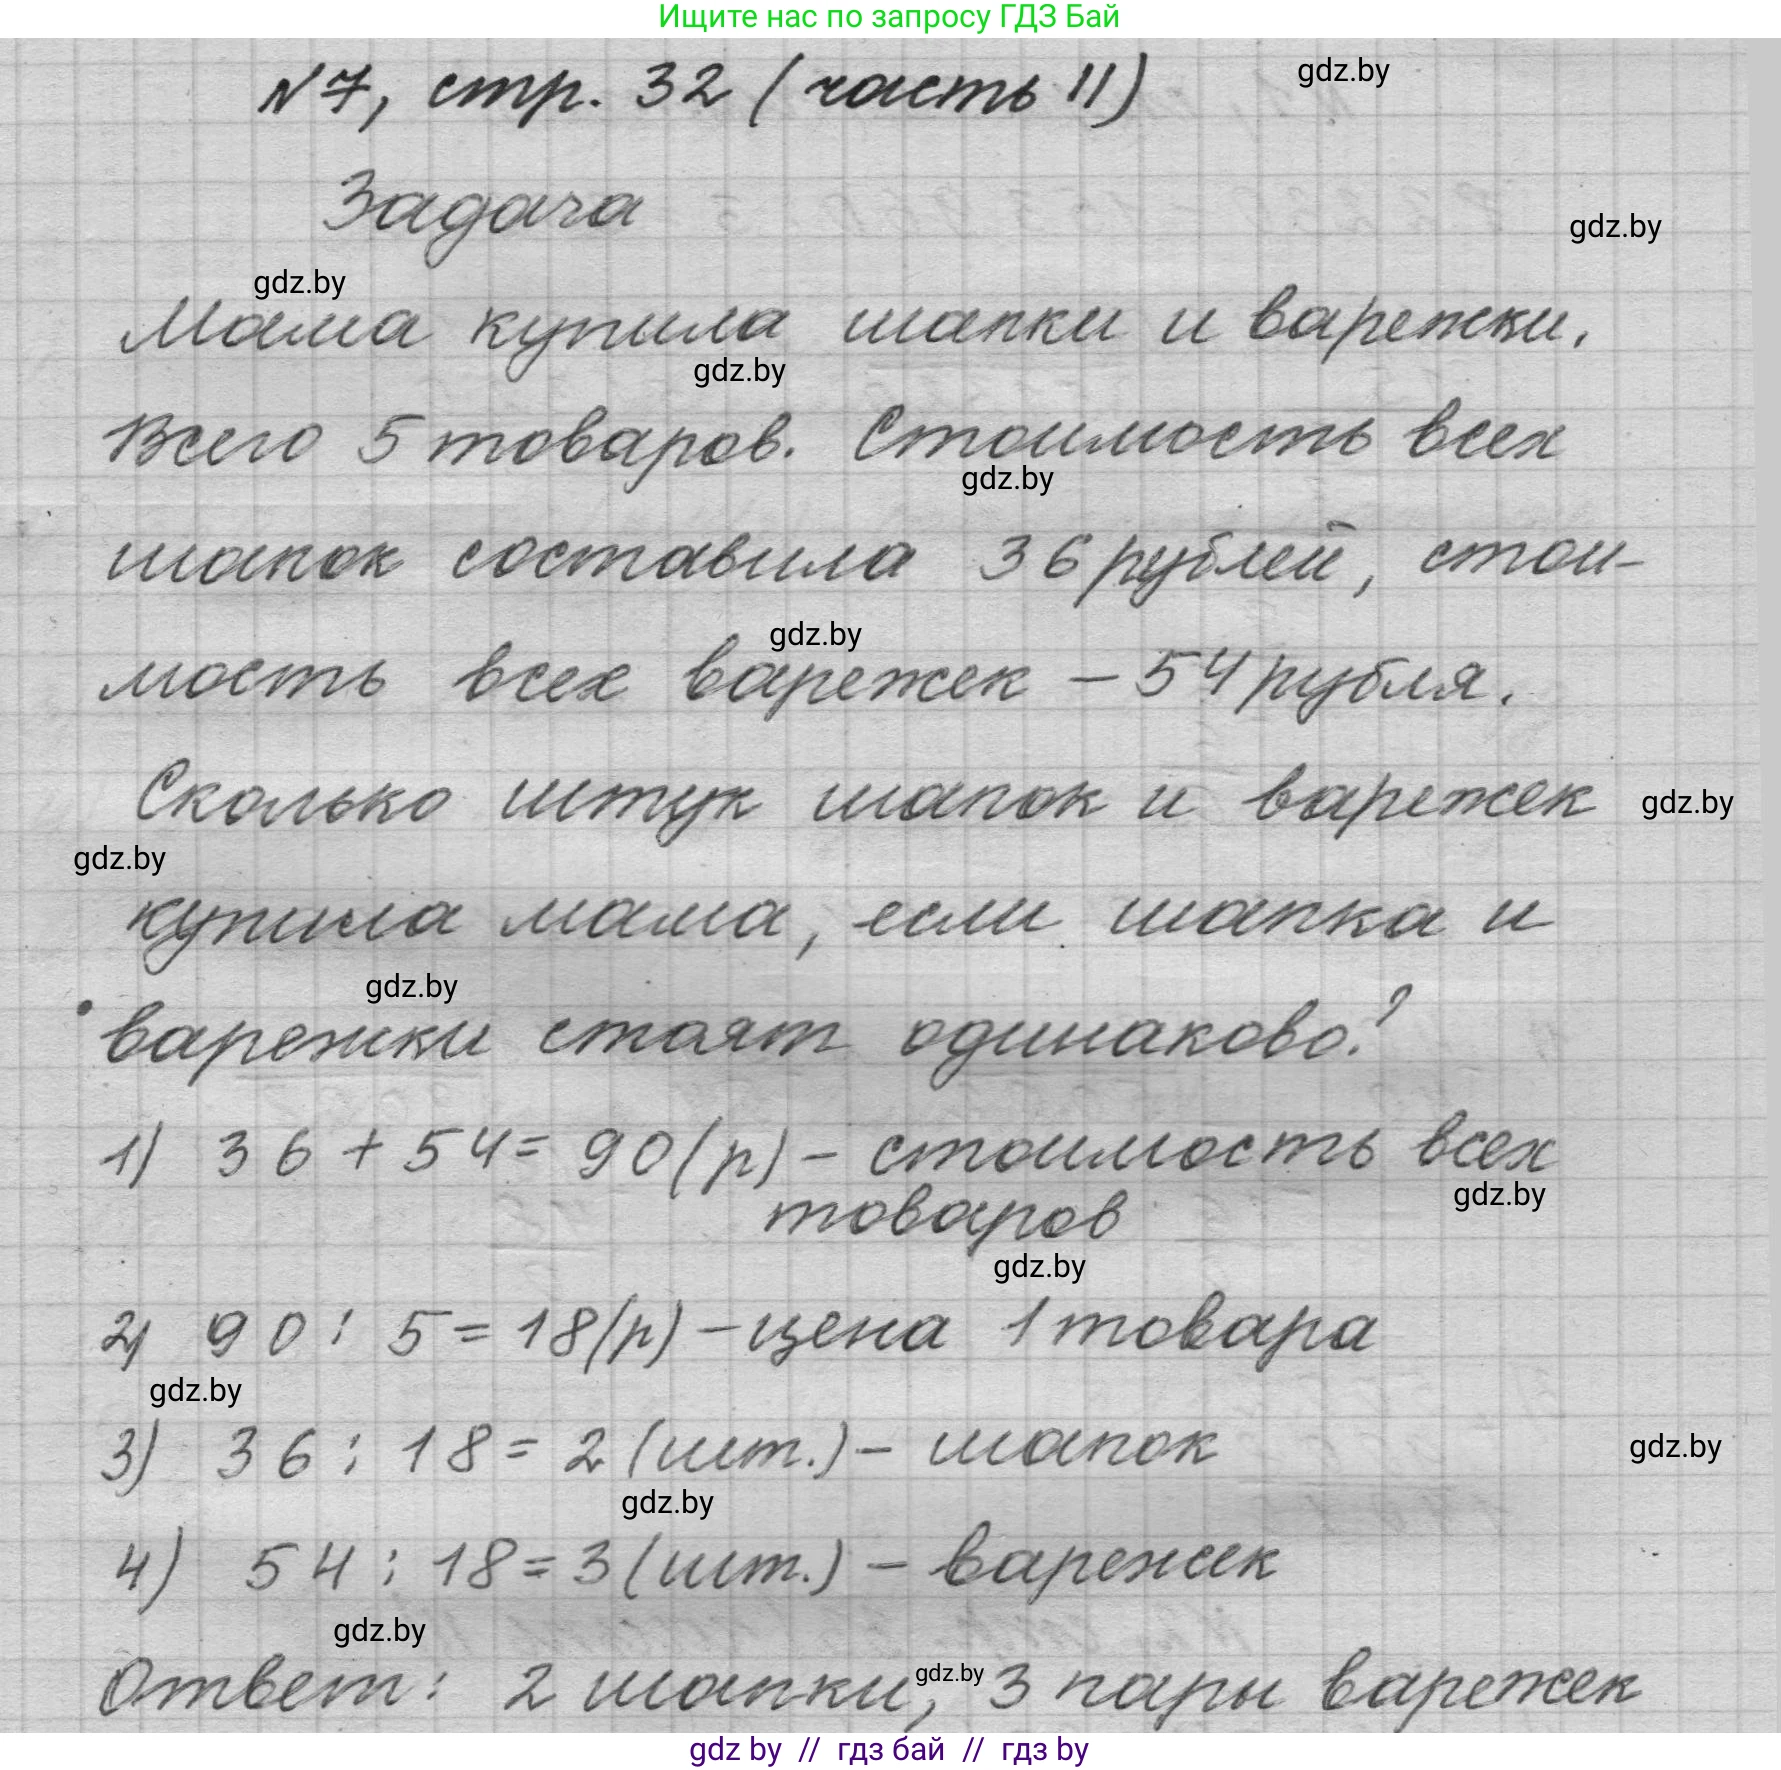 Ищите нас по запросу ГДЗ Бай
№7, стр. 32 (часть II)
gdz.by
Задача
gdz.by
gdz.by
Мама купила шапки и варежки.
gdz.by
Всего 5 товаров. Стоимость всех
gdz.by
шапок составила 36 рублей, стои-
gdz.by
мость всех варежек – 54 рубля.
Сколько штук шапок и варежек
gdz.by
gdz.by
купила мама, если шапка и
gdz.by
варежки стоят одинаково?
1) 36 + 54 = 90 (р) – стоимость всех
gdz.by
товаров
gdz.by
2) 90 : 5 = 18 (р) – цена 1 товара
gdz.by
3) 36 : 18 = 2 (шт.) – шапок
gdz.by
gdz.by
4) 54 : 18 = 3 (шт.) – варежек
gdz.by
Ответ: 2 шапки, 3 пары варежек
gdz.by
gdz by // гдз бай // гдз by